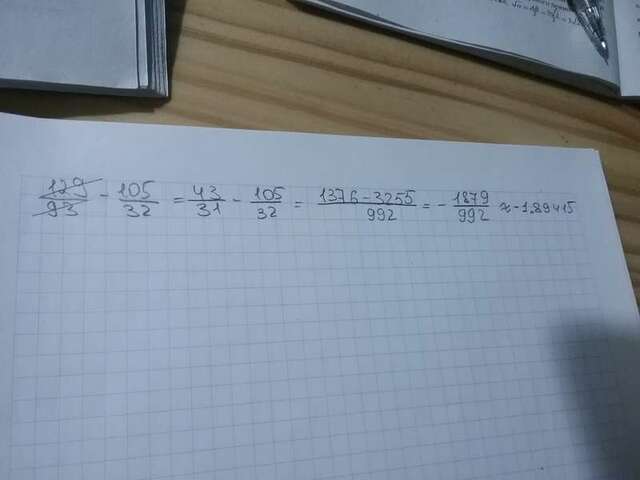 129/93 - 105/32 = 43/31 - 105/32 = 1376-3255/992 = - 1879/992 ≈ -1.89415